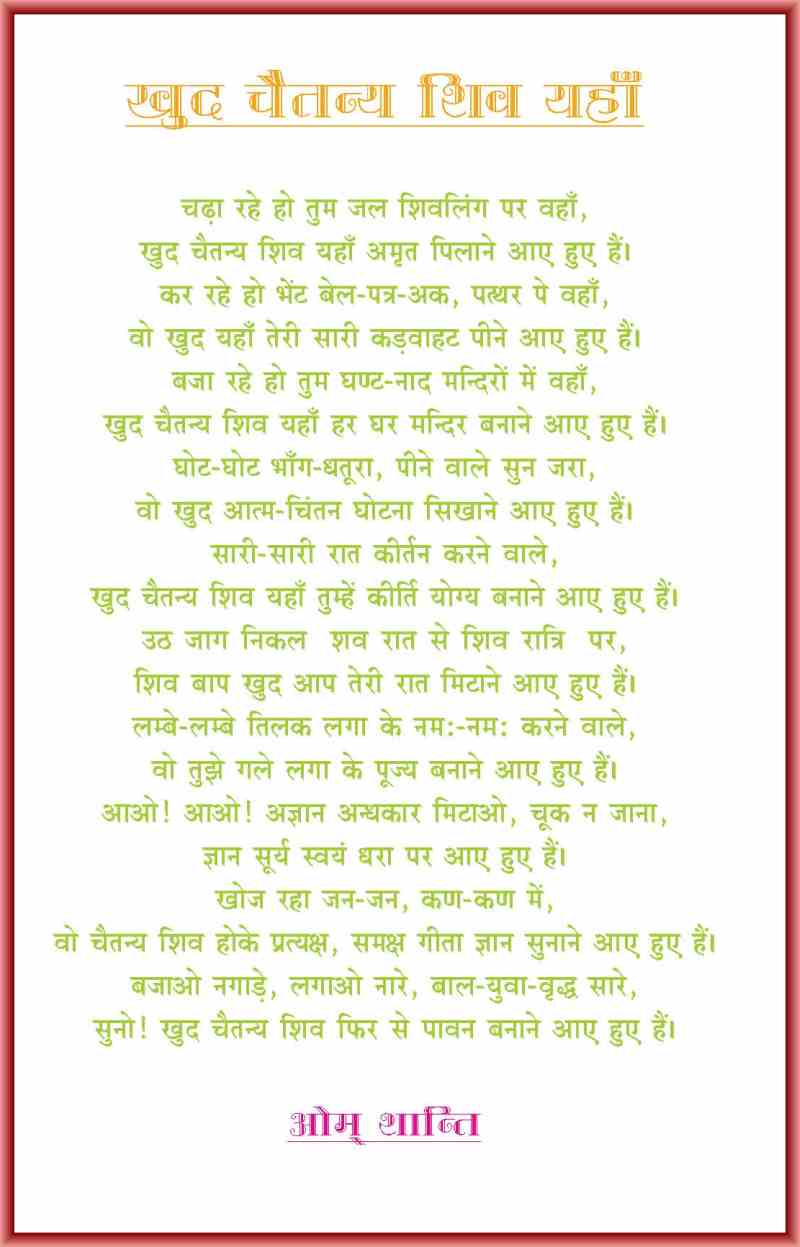 खुद चैतन्य शिव यहाँ
चढ़ा रहे हो तुम जल शिवलिंग पर वहाँ,
खुद चैतन्य शिव यहाँ अमृत पिलाने आए हुए हैं।
कर रहे हो भेंट बेल-पत्र-अक, पत्थर पे वहाँ,
वो खुद यहाँ तेरी सारी कड़वाहट पीने आए हुए हैं।
बजा रहे हो तुम घण्ट-नाद मन्दिरों में वहाँ,
खुद चैतन्य शिव यहाँ हर घर मन्दिर बनाने आए हुए हैं।
घोट-घोट भाँग-धतूरा, पीने वाले सुन जरा,
वो खुद आत्म-चिंतन घोटना सिखाने आए हुए हैं।
सारी-सारी रात कीर्तन करने वाले,
खुद चैतन्य शिव यहाँ तुम्हें कीर्ति योग्य बनाने आए हुए हैं।
उठ जाग निकल शव रात से शिव रात्रि पर,
शिव बाप खुद आप तेरी रात मिटाने आए हुए हैं।
लम्बे-लम्बे तिलक लगा के नम:-नम: करने वाले,
वो तुझे गले लगा के पूज्य बनाने आए हुए हैं।
आओ! आओ! अज्ञान अन्धकार मिटाओ, चूक न जाना,
ज्ञान सूर्य स्वयं धरा पर आए हुए हैं।
खोज रहा जन-जन, कण-कण में,
वो चैतन्य शिव होके प्रत्यक्ष, समक्ष गीता ज्ञान सुनाने आए हुए हैं।
बजाओ नगाड़े, लगाओ नारे, बाल-युवा-वृद्ध सारे,
सुनो! खुद चैतन्य शिव फिर से पावन बनाने आए हुए हैं।
ओम् शान्ति